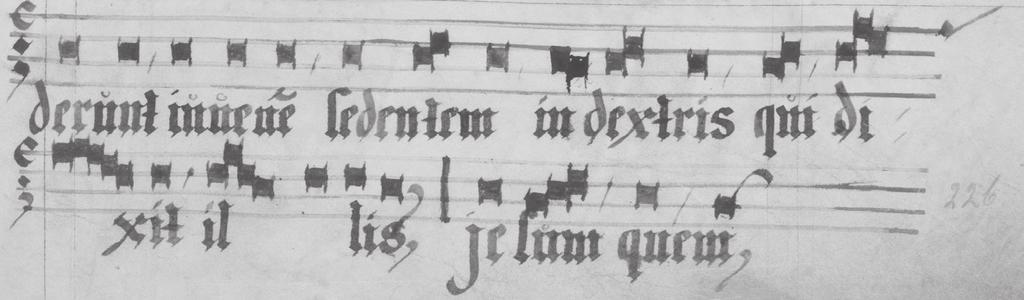 derunt iuuenē sedentem in dextris qui di
xit il lis, jesum quem,
226